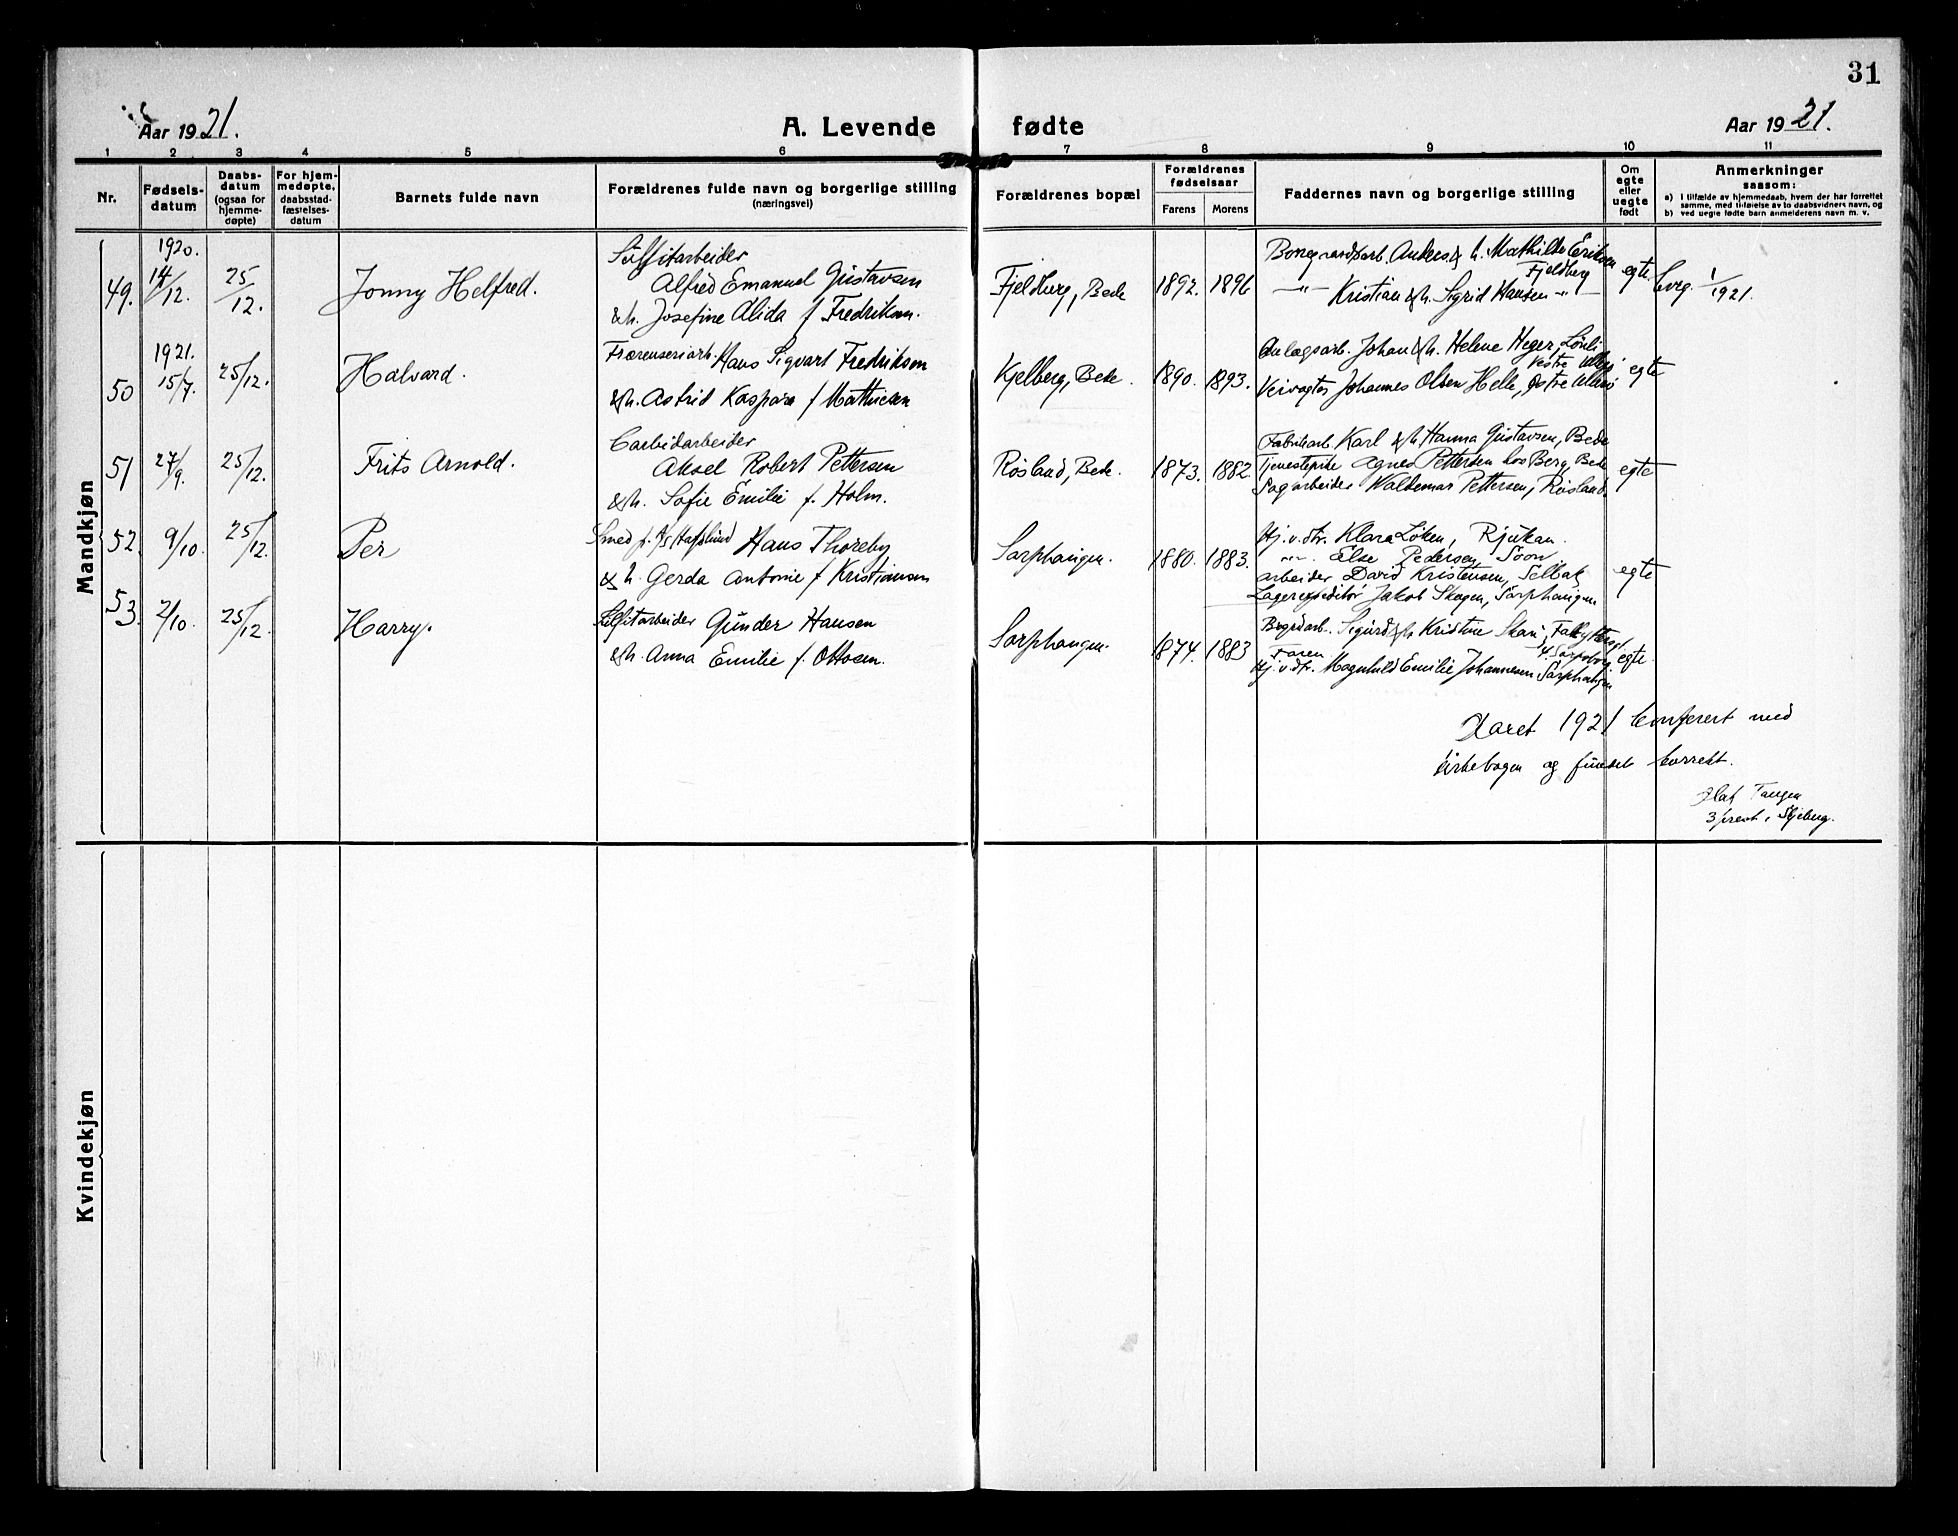 31
Aar 1921.
A. Levende fødte
Aar 1921.
1 2 3 4 5 6 7 8 9 10 11
Nr.
Fødsels-
datum
Daabs-
datum
(ogsaa for
hjemme-
døpte)
For hjem-
medøpte,
daabsstad-
fæstelses-
datum
Barnets fulde navn
Forældrenes fulde navn og borgerlige stilling
(næringsvei)
Forældrenes bopæl
Forældrenes
fødselsaar
Farens Morens
Faddernes navn og borgerlige stilling
Om
egte
eller
uegte
født
Anmerkninger
saasom:
a) I tilfælde av hjemmedaab, hvem der har forrettet
samme, med tilføielse av to daabsvidners navn, og
b) ved uegte fødte barn anmelderens navn m. v.
Mandkjøn
1920.
49. 14/12. 25/12. Jonny Helfred.
Sulfitarbeider
Alfred Emanuel Gustavsen
& h. Josefine Alida f Fredriksen.
Fjeldberg, Bede 1892. 1896
Anders & h. Mathilde Eriksen
Fjeldberg
-"- Kristian & h. Sigrid Hansen -"-
egte
1/1921.
1921.
50 15/7. 25/12. Halvard.
Hans Sigvart Fredriksen
& h. Astrid Kaspara f Mathiesen
Kjelberg, Bede. 1890. 1893.
Anlægsarb. Johan & h. Helene Heger,
Veivogter Johannes Olsen Helle,
egte
51 27/9. 25/12. Frits Arnold.
Carbidarbeider
Aksel Robert Pettersen
& h. Sofie Emilie f. Holm.
Røsland, Bede. 1873. 1882
Fabrikarb. Karl & h. Hanna Gustavsen, Bede
Tjenestepike Agnes Pettersen hos Berg, Bede
Sagarbeider Valdemar Pettersen, Røsland.
egte
52. 9/10. 25/12. Per
Smed p. A/S Hafslund Hans Thoreby
& h. Gerda Antonie f Kristiansen
Sarphaugen. 1880. 1883.
Hj. v. dtr. Klara Løken, Rjukan.
-"- Else Pedersen, Soon
arbeider David Kristensen, Selbak
Lagerexpeditør Jakob Skogen, Sarphaugen.
egte
53. 2/10. 25/12. Harry.
Sulfitarbeider Gunder Hansen
& h. Anna Emilie f. Ottosen.
Sarphaugen. 1874. 1883
Sigurd & h Kristine Skari,
Sarpsborg
Faren
Hj. v. dtr. Magnhild Emilie Johannesen Sarphaugen
egte.
Aaret 1921 konferert med
kirkebogen og fundet korrekt.
Olaf Tangen
Skjeberg.
Kvindekjøn